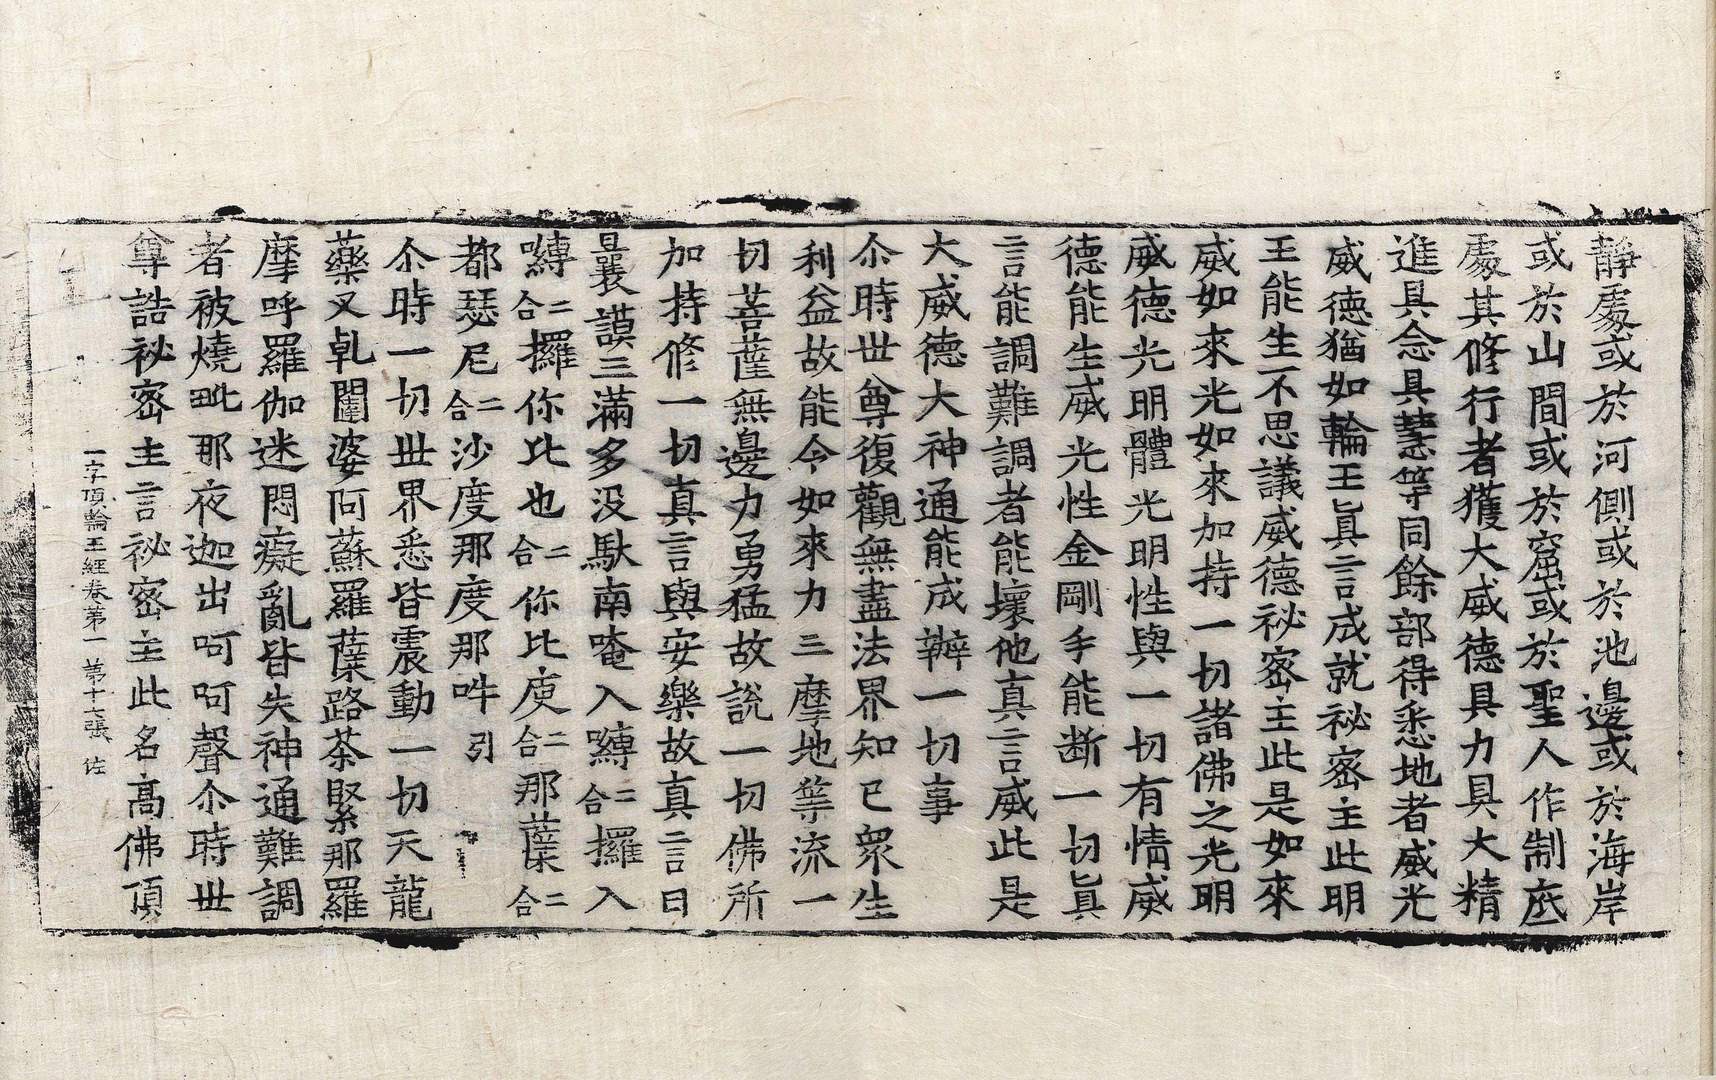 靜處或於河側或於池邊或於海岸
或於山間或於窟或於聖人作制底
處其修行者獲大威德具力具大精
進具念具慧等同餘部得悉地者威光
威德猶如輪王真言成就祕密主此明
王能生不思議威德祕密主此是如來
威如來光如來加持一切諸佛之光明
威德光明體光明性與一切有情威
德能生威光性金剛手能断一切真
言能調難調者能壞他真言威此是
大威德大神通能成辦一切事
尒時世尊復觀無盡法界知已衆生
利益故能令如來力三摩地等流一
切菩薩無邊力勇猛故說一切佛所
加持修一切真言與安樂故真言曰
曩謨三滿多没馱南唵入嚩二合攞入
嚩二合攞你比也二合你比庾二合那蘖二合
都瑟尼二合沙度那度那吽引
尒時一切世界悉皆震動一切天龍
藥叉乹闥婆阿蘇羅蘖路荼緊那羅
摩呼羅伽迷悶癡亂皆失神通難調
者被燒毗那夜迦出呵呵聲尒時世
尊誥祕密主言祕密主此名高佛頂
一字頂輪王經卷第一 第十七張 佐